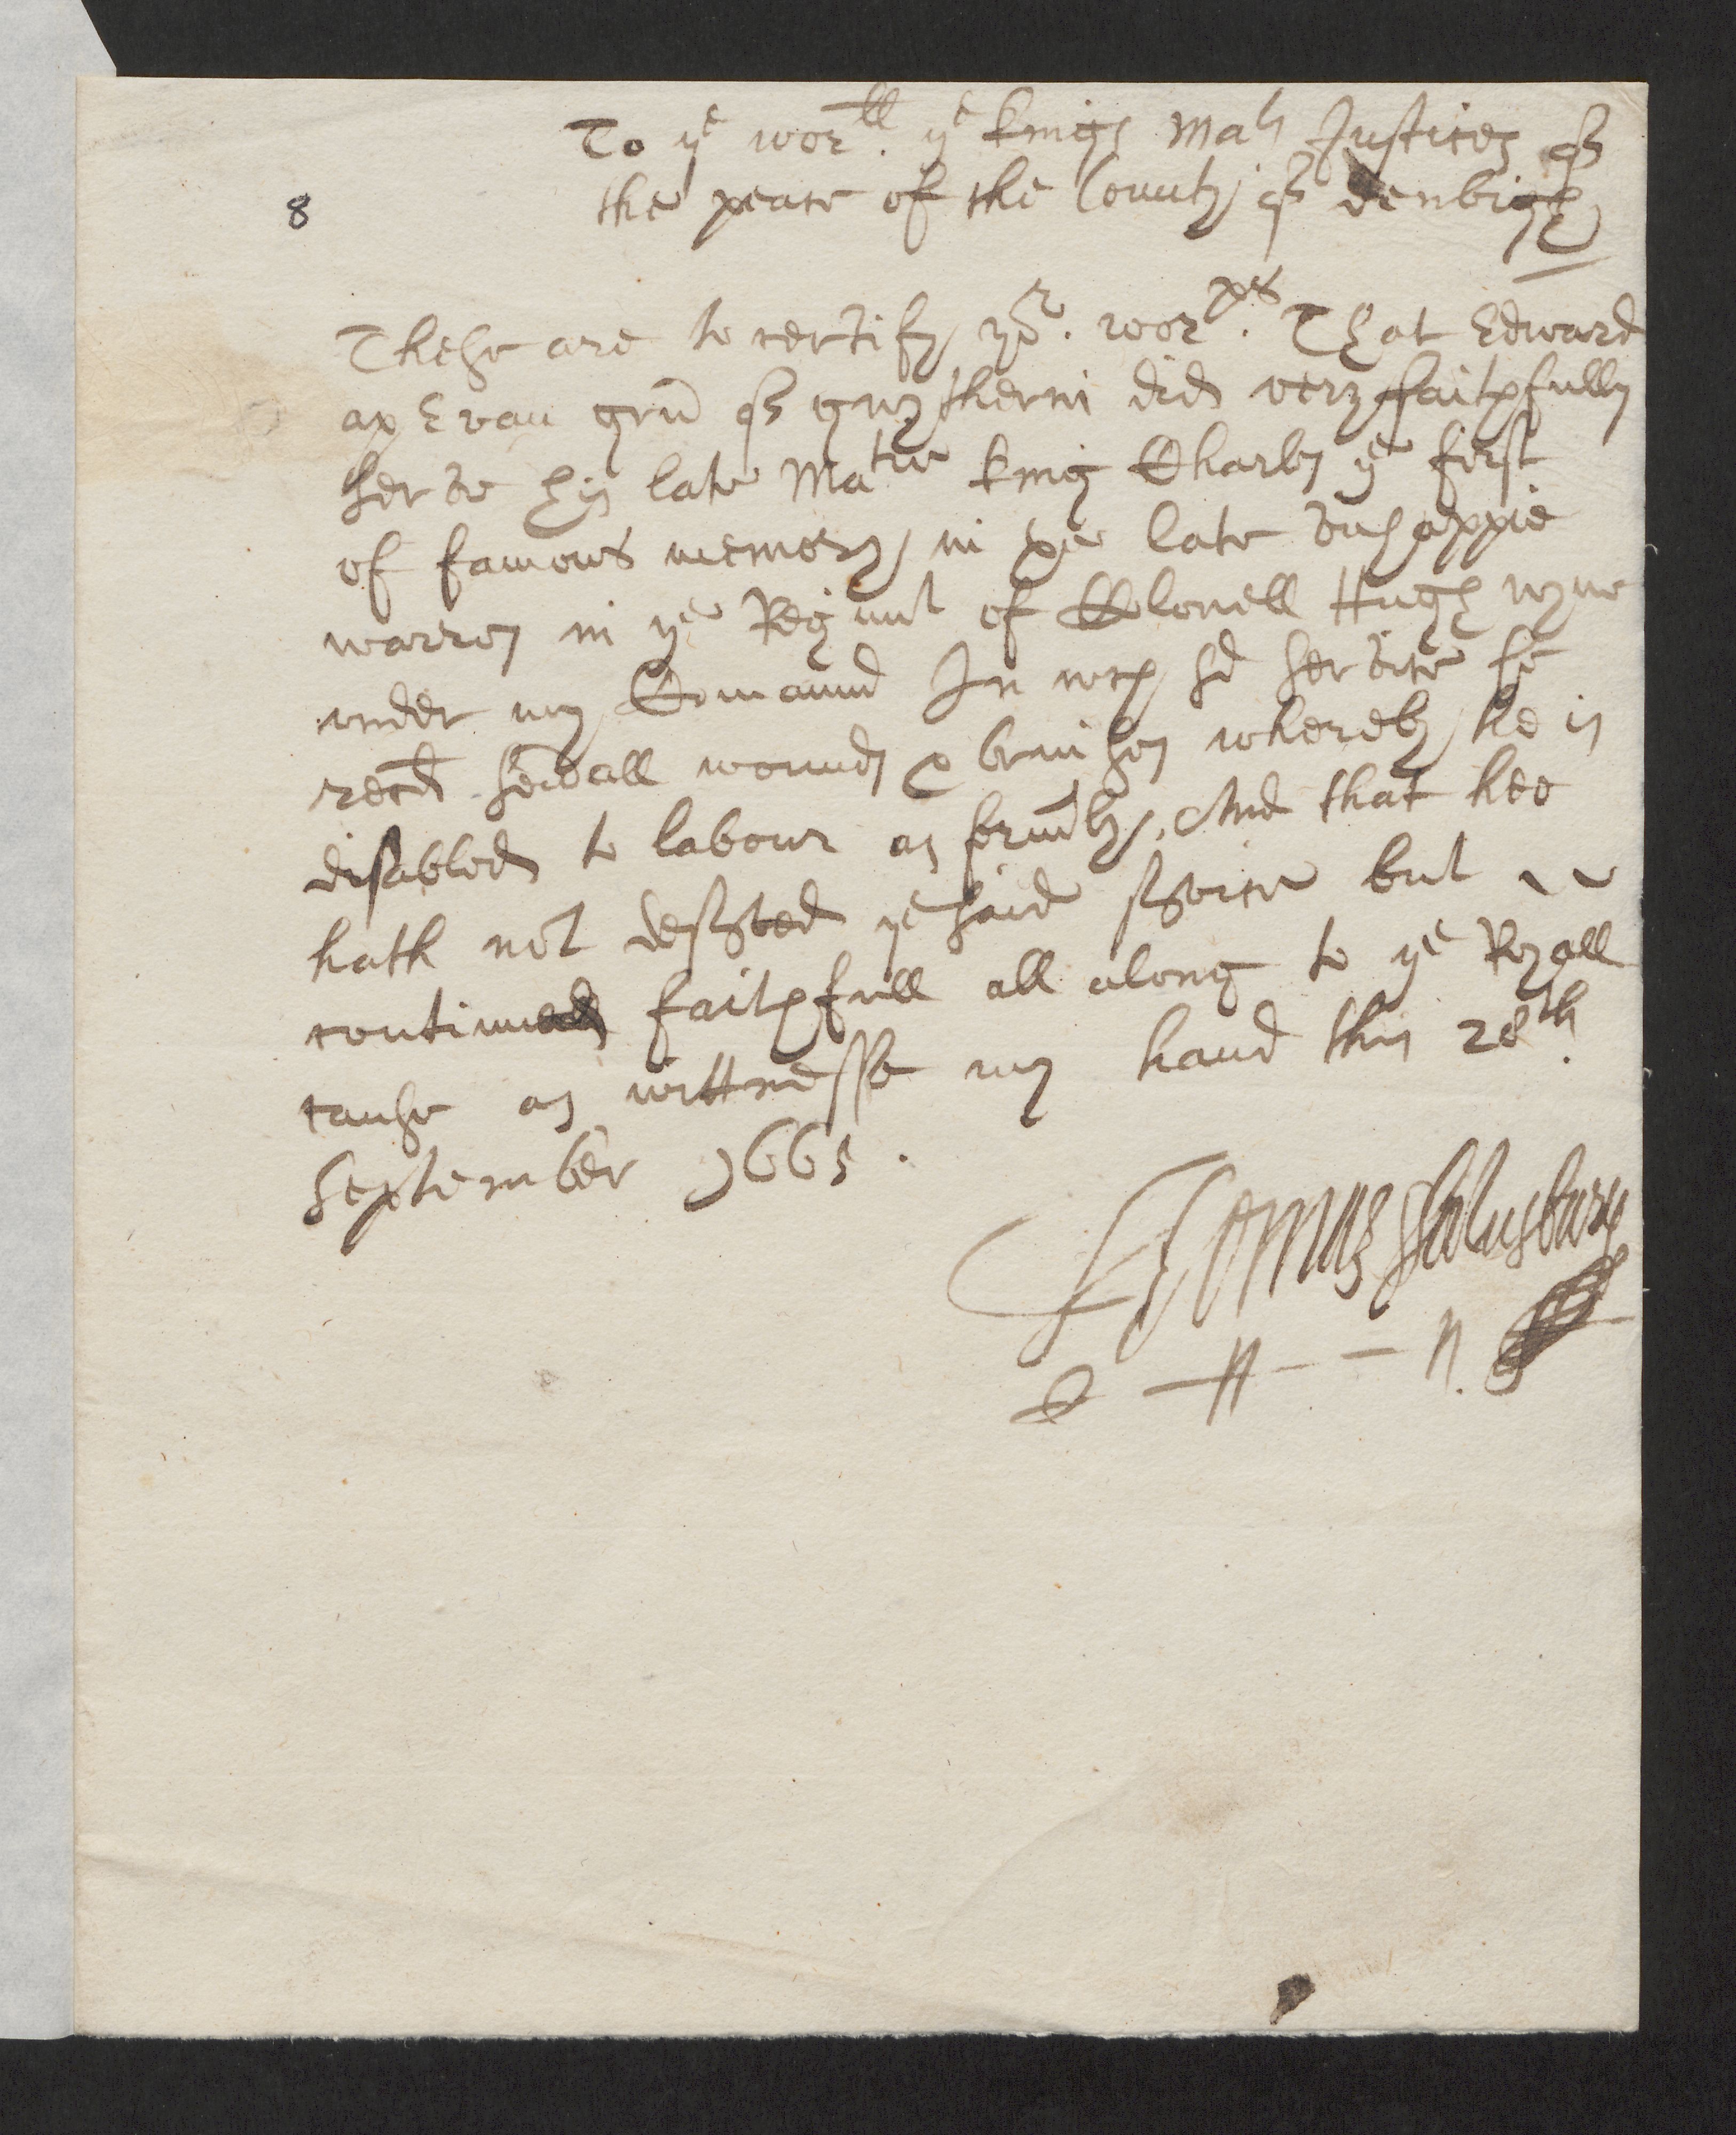 To ye worll. ye kings Mats Justices of
8
the peace of the County of denbigh
These are to certify yor. worps. That Edward
ap Evan gru of gwytherin did very faithfully
serve his late Matie king Charles ye first
of famous memory in ye late vnhappie
warres in ye Regimt of Collonell Hugh wyne
vnder my Comaund In wch sd service he
recd severall wounds & bruises whereby he is
disabled to labour as formly, And that hee
hath not deserted ye said service but
continued faithfull all along to ye Royall
cause as wittnesse my hand this 28th.
September 1665.
Thomas Salusbury